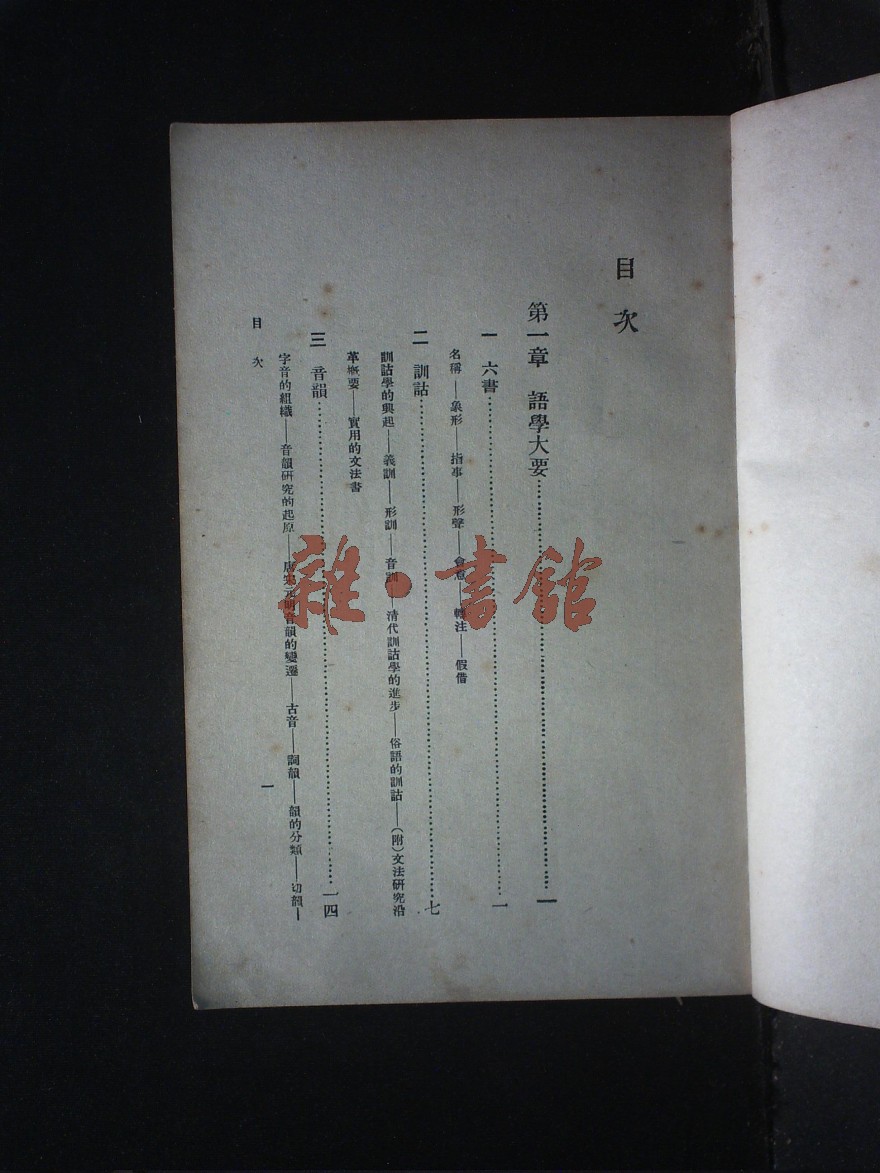 目次
第一章 語學大要……一
一 六書……一
名稱——象形——指事——形聲——會意——轉注——假借
二 訓詁……七
訓詁學的興起——義訓——形訓——音訓——清代訓詁學的進步——俗語的訓詁——(附)文法研究沿
革概要——實用的文法書
三 音韻……一四
字音的組織——音韻研究的起原——唐宋元明音韻的變遷——古音——詞韻——韻的分類——切韻—
目次 一
雜·書館